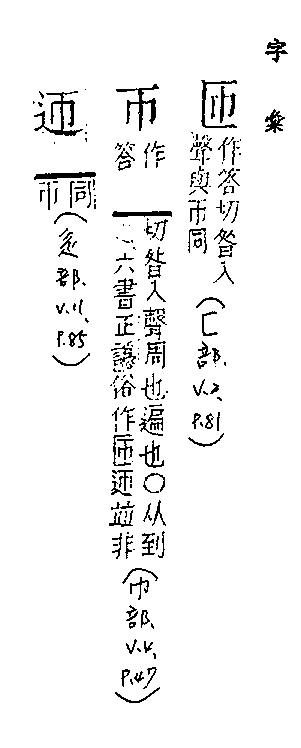 字彙
匝
作答切昝入
聲與帀同
(匚部、V.2, P.81)
帀
作答
切昝入聲周也遍也○从到
六書正譌俗作匝迊並非
(巾部、V.4, P.47)
迊
同帀
(辵部、V.11, P.85)